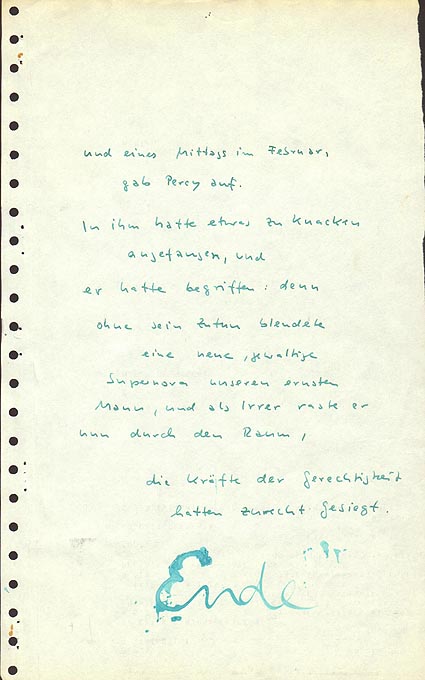 und eines Mittags im Februar,
gab Percy auf.
In ihm hatte etwas zu knacken
angefangen, und
er hatte begriffen: denn
ohne sein Zutun blendete
eine neue, gewaltige
Supernova unseren ernsten
Mann, und als Irrer raste er
nun durch den Raum,
die Kräfte der Gerechtigkeit
hatten zurecht gesiegt.
Ende